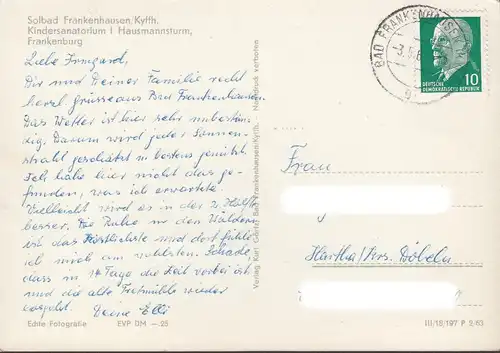 Solbad Frankenhausen/Kyffh.
Kindersanatorium I Hausmannsturm,
Frankenburg
Liebe Irmgard,
Dir und Deiner Familie recht
herzl. Grüsse aus Bad Frankenhausen.
Das Wetter ist hier sehr unbestän-
dig. Darum wird jeder Sonnen-
strahl geschätzt u. bestens genützt.
Ich habe hier nicht das ge-
funden, was ich erwartete.
Vielleicht wird es in der 2. Hälfte
besser. Die Ruhe in den Wäldern
ist das Köstlichste und dort fühle
ich mich am wohlsten. Schade,
dass in 14 Tage die Zeit vorbei ist
und die alte Tretmühle wieder
losgeht. Deine Elli
Echte Fotografie EVP DM -.25
Verlag Kurt Bad Frankenhausen/Kyffh. Nachdruck verboten
BAD FRANKENHAUSEN
10
DEUTSCHE
DEMOKRATISCHE REPUBLIK
Frau
Hartha/Krs. Döbeln
III/18/197 P 5/63